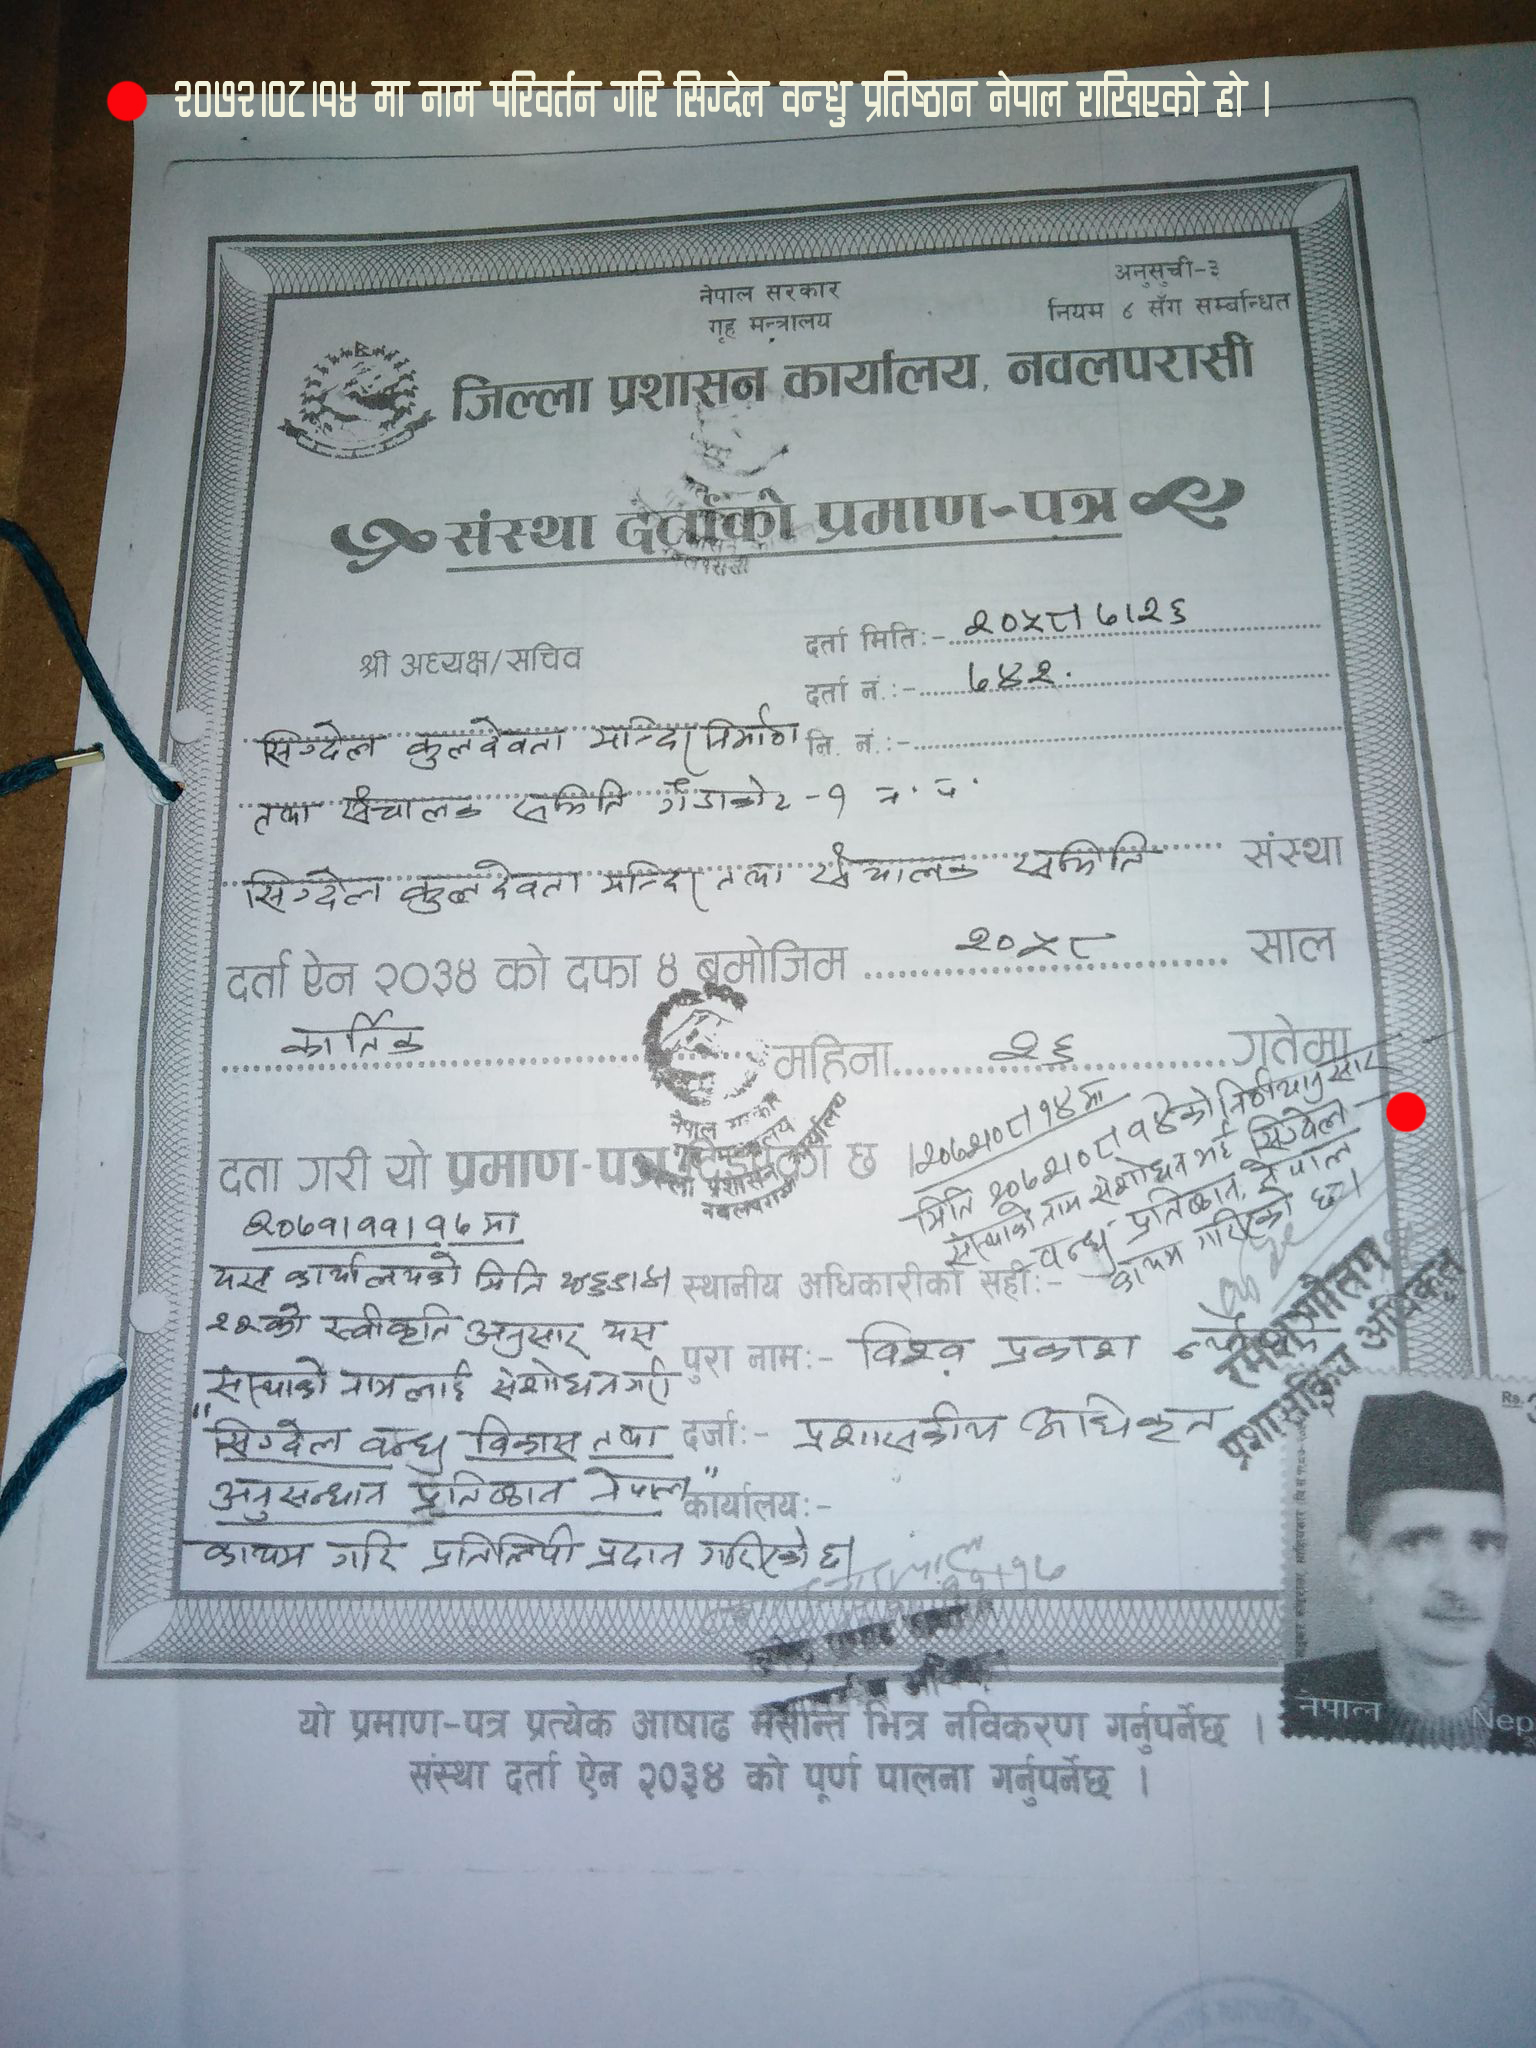 २०७२।०८।१४ मा नाम परिवर्तन गरि सिग्देल वन्धु प्रतिष्ठान नेपाल राखिएको हो ।
अनुसुची-३
नियम ४ सँग सम्बन्धित
नेपाल सरकार
गृह मन्त्रालय
जिल्ला प्रशासन कार्यालय, नवलपरासी
संस्था दर्ताको प्रमाण-पत्र
दर्ता मिति:- २०५८।७।२६
श्री अध्यक्ष/सचिव
दर्ता नं.:- ७४२.
सिग्देल कुलदेवता मन्दिर निर्माण
नि. नं.:-
तथा संचालक समिति गैंडाकोट-१ न. प.
सिग्देल कुलदेवता मन्दिर तथा संचालक समिति संस्था
दर्ता ऐन २०३४ को दफा ४ बमोजिम २०५८ साल
कार्तिक महिना २६ गतेमा
दता गरी यो प्रमाण-पत्र छ ।
नेपाल सरकार
गृह मन्त्रालय
जिल्ला प्रशासन कार्यालय
नवलपरासी
२०७२।०८।१४ मा
मिति २०७२।०८।१४ को निर्णयानुसार
संस्थाको नाम संशोधन भई सिग्देल
वन्धु प्रतिष्ठान, नेपाल
कायम गरिएको छ ।
२०७१।११।१७ मा
यस कार्यालयको मिति
२२को स्वीकृति अनुसार यस
संस्थाको नामलाई संशोधन गरी
"सिग्देल वन्धु विकास तथा
अनुसन्धान प्रतिष्ठान नेपाल"
कायम गरि प्रतिलिपी प्रदान गरिएको छ।
स्थानीय अधिकारीको सही:-
पुरा नाम:- विश्व प्रकाश
दर्जा:- प्रशासकीय अधिकृत
कार्यालय:-
गौतम
प्रशासकिय अधिकृत
Rs.
नेपाल
Nep
यो प्रमाण-पत्र प्रत्येक आषाढ मसान्त भित्र नविकरण गर्नुपर्नेछ ।
संस्था दर्ता ऐन २०३४ को पूर्ण पालना गर्नुपर्नेछ ।